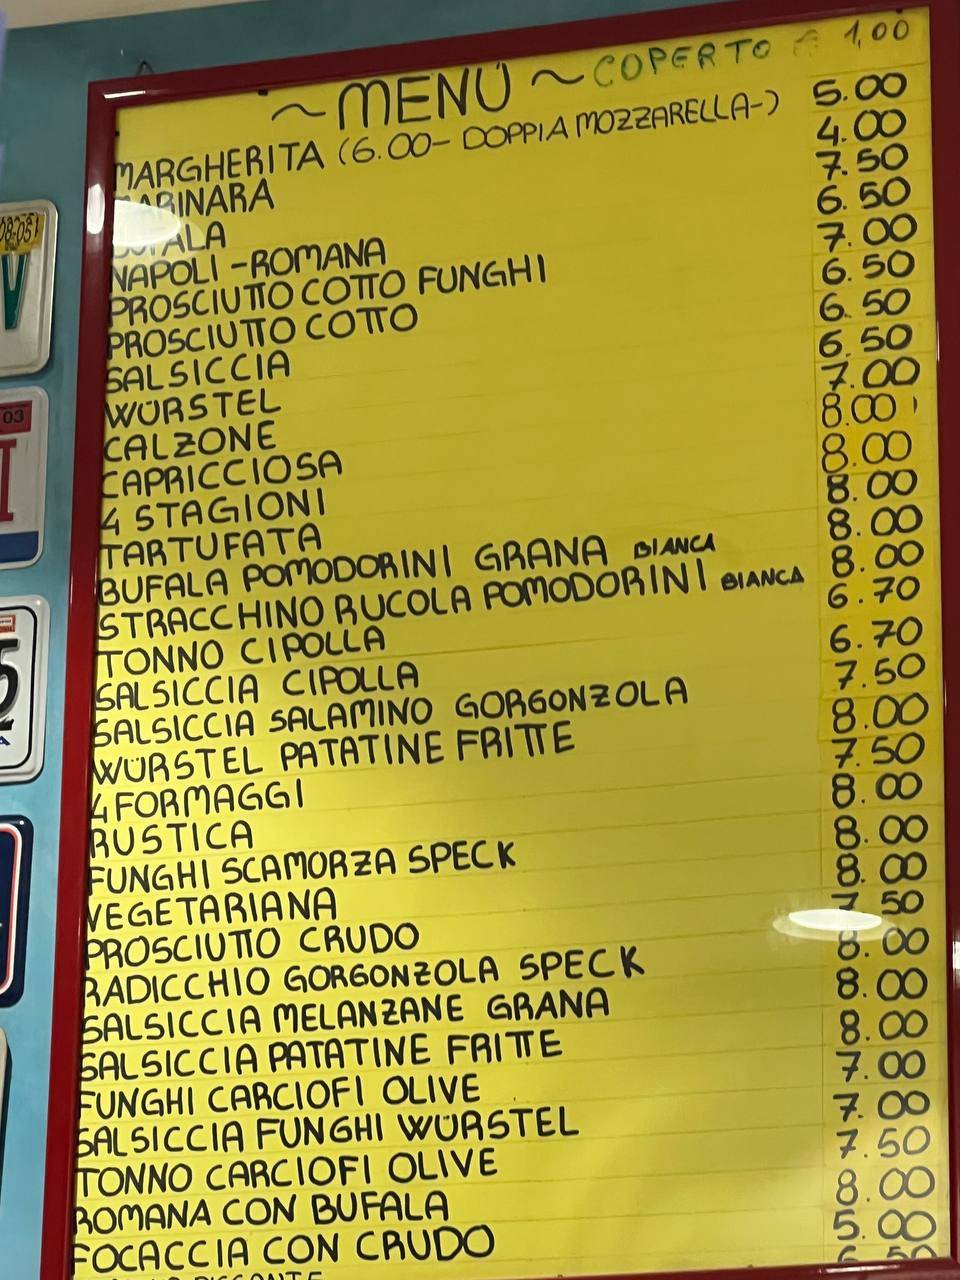 ~ MENÙ ~ COPERTO € 1,00
MARGHERITA (6.00- DOPPIA MOZZARELLA-) 5.00
MARINARA 4.00
BUFALA 7.50
NAPOLI - ROMANA 6.50
PROSCIUTTO COTTO FUNGHI 7.00
PROSCIUTTO COTTO 6.50
SALSICCIA 6.50
WÜRSTEL 6.50
CALZONE 7.00
CAPRICCIOSA 8.00
4 STAGIONI 8.00
TARTUFATA 8.00
BUFALA POMODORINI GRANA BIANCA 8.00
STRACCHINO RUCOLA POMODORINI BIANCA 8.00
TONNO CIPOLLA 6.70
SALSICCIA CIPOLLA 6.70
SALSICCIA SALAMINO GORGONZOLA 7.50
WÜRSTEL PATATINE FRITTE 8.00
4 FORMAGGI 7.50
RUSTICA 8.00
FUNGHI SCAMORZA SPECK 8.00
VEGETARIANA 8.00
PROSCIUTTO CRUDO 7.50
RADICCHIO GORGONZOLA SPECK 8.00
SALSICCIA MELANZANE GRANA 8.00
SALSICCIA PATATINE FRITTE 8.00
FUNGHI CARCIOFI OLIVE 7.00
SALSICCIA FUNGHI WÜRSTEL 7.00
TONNO CARCIOFI OLIVE 7.50
ROMANA CON BUFALA 8.00
FOCACCIA CON CRUDO 5.00
6.50
08-05
V
03
I
5